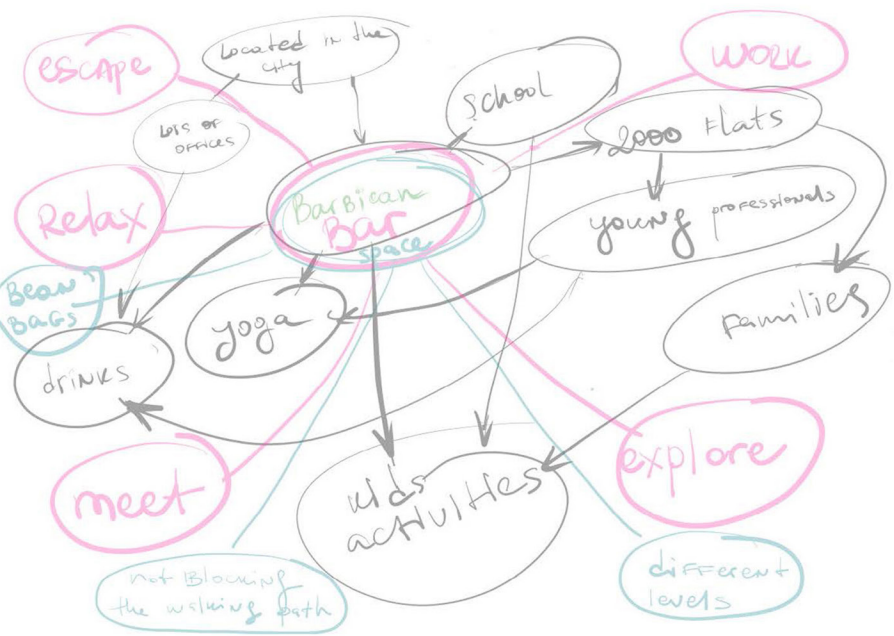 escape
Located in the
city
work
school
Lots of
offices
2000 Flats
Relax
Barbican
Bar
space
young professionals
Bean
BAGS
yoga
Families
drinks
meet
kids
activities
explore
not Blocking
the walking path
different
levels